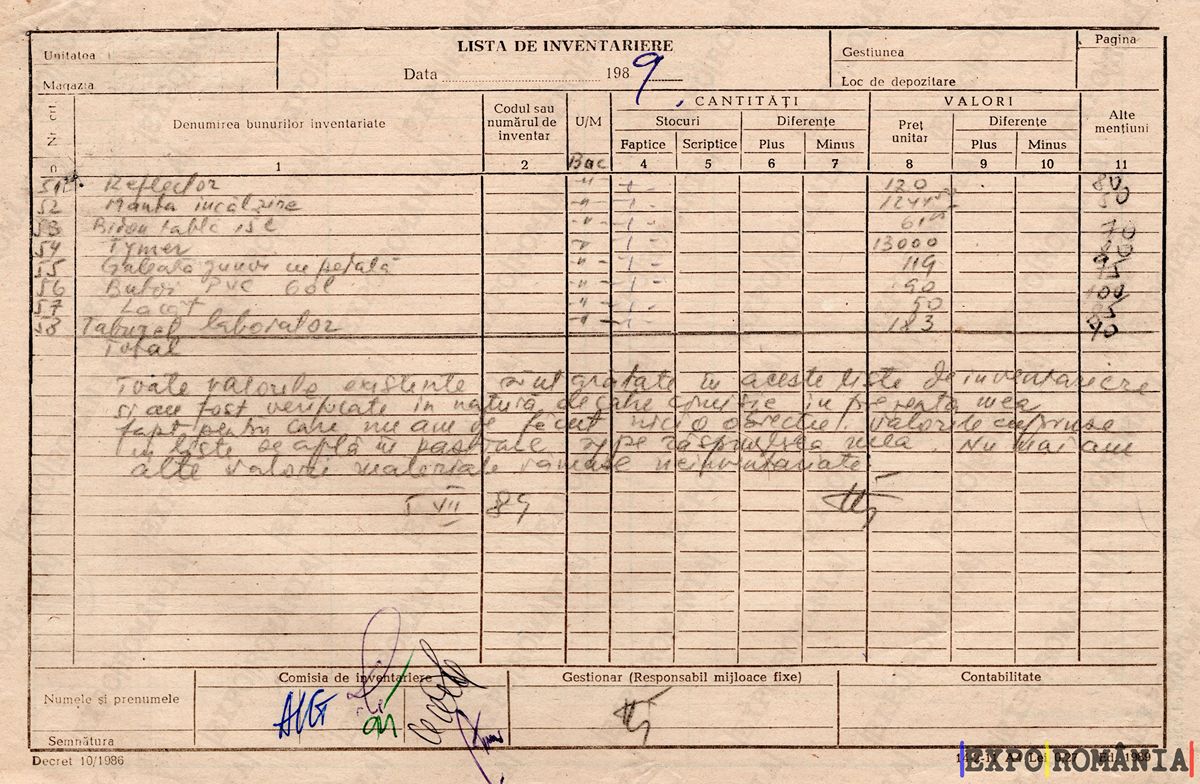 Unitatea
Magazia
LISTA DE INVENTARIERE
Data 1989
Gestiunea
Loc de depozitare
Pagina
Nr. crt
Denumirea bunurilor inventariate
Codul sau numărul de inventar
U/M
CANTITĂȚI
Stocuri
Diferențe
Faptice
Scriptice
Plus
Minus
VALORI
Preț unitar
Diferențe
Plus
Minus
Alte mențiuni
0 1 2 Buc 4 5 6 7 8 9 10 11
51 Reflector -"- 1 - 120 80
52 Manta incalzire -"- 1 - 50
53 Bidon tabla 15 l -"- 1 - 70
54 Tymer -"- 1 - 13000
55 Galeată gunoi cu pedală -"- 1 - 119 95
56 Butoi PVC 60 l -"- 1 - 190 100
57 Lacăt -"- 1 - 50
58 Taburet laborator -"- 1 - 183 90
Total
Toate valorile existente sînt în aceste liste de inventariere
si au fost verificate in natură de catre comisie in prezenta mea
fapt pentru care nu am de făcut nici o obiectie. Valorile cuprinse
in liste se află în pastrare si pe răspunderea mea. Nu mai am
alte valori materiale rămase neinventariate.
I VII 89
Comisia de inventariere
Gestionar (Responsabil mijloace fixe)
Contabilitate
Numele și prenumele
Semnătura
Decret 10/1986
EXPO ROMÂNIA